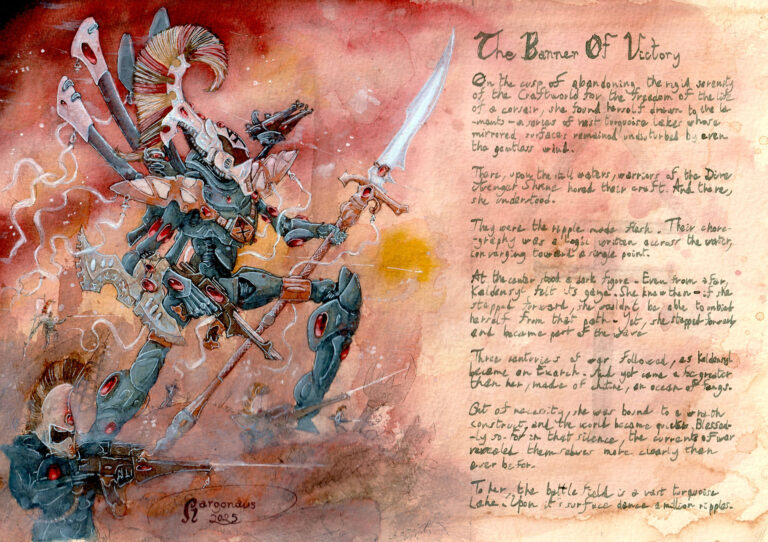 The Banner Of Victory
On the cusp of abandoning the rigid serenity
of the Craftworld for the freedom of the life
of a corsair, she found herself drawn to the le-
-ments - a series of vast turquoise lakes whose
mirrored surfaces remained undisturbed by even
the gentless wind.
There, upon the still waters, warriors of the Dire
Avenger Shrine honed their craft. And there,
she understood.
They were the ripple made flesh. Their chore-
-graphy was a logic written accross the water,
converging toward a single point.
At the center stood a dark figure. Even from afar,
felt its gaze. She knew then - if she
stepped forward, she wouldn't be able to
herself from that path. Yet, she stepped forward
and became part of the
Three centuries of war followed, as
became an Exarch. And yet came a foe greater
than her, made of chitine, an ocean of fangs.
Out of necessity, she was bound to a wraith
construct, and the world became quieter. Blessed-
-ly so. for in that silence, the currents of war
revealed themselves more clearly than
ever before.
To her, the battlefield is a vast turquoise
Lake. Upon it's surface dance a million ripples.
2025